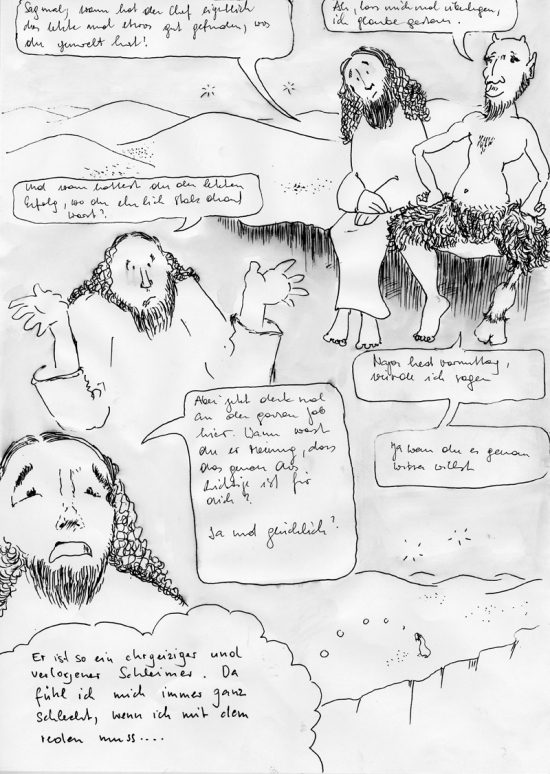 Sag mal, wann hat der Chef eigentlich
das letzte mal etwas gut gefunden, was
du gemacht hast?
Ah, lass mich mal überlegen,
ich glaube gestern.
Und wann hattest du den letzten
Erfolg, wo du ehrlich stolz drauf
warst?
Na heut vormittag,
würde ich sagen
Ja wenn du es genau
wissen willst
Aber jetzt denk mal
an den ganzen Job
hier. Wann warst
du er Meinung, dass
das genau das
Richtige ist für
dich?
Ja und glücklich?
Er ist so ein ehrgeiziger und
verlogener Schleimer. Da
fühl ich mich immer ganz
schlecht, wenn ich mit dem
reden muss....